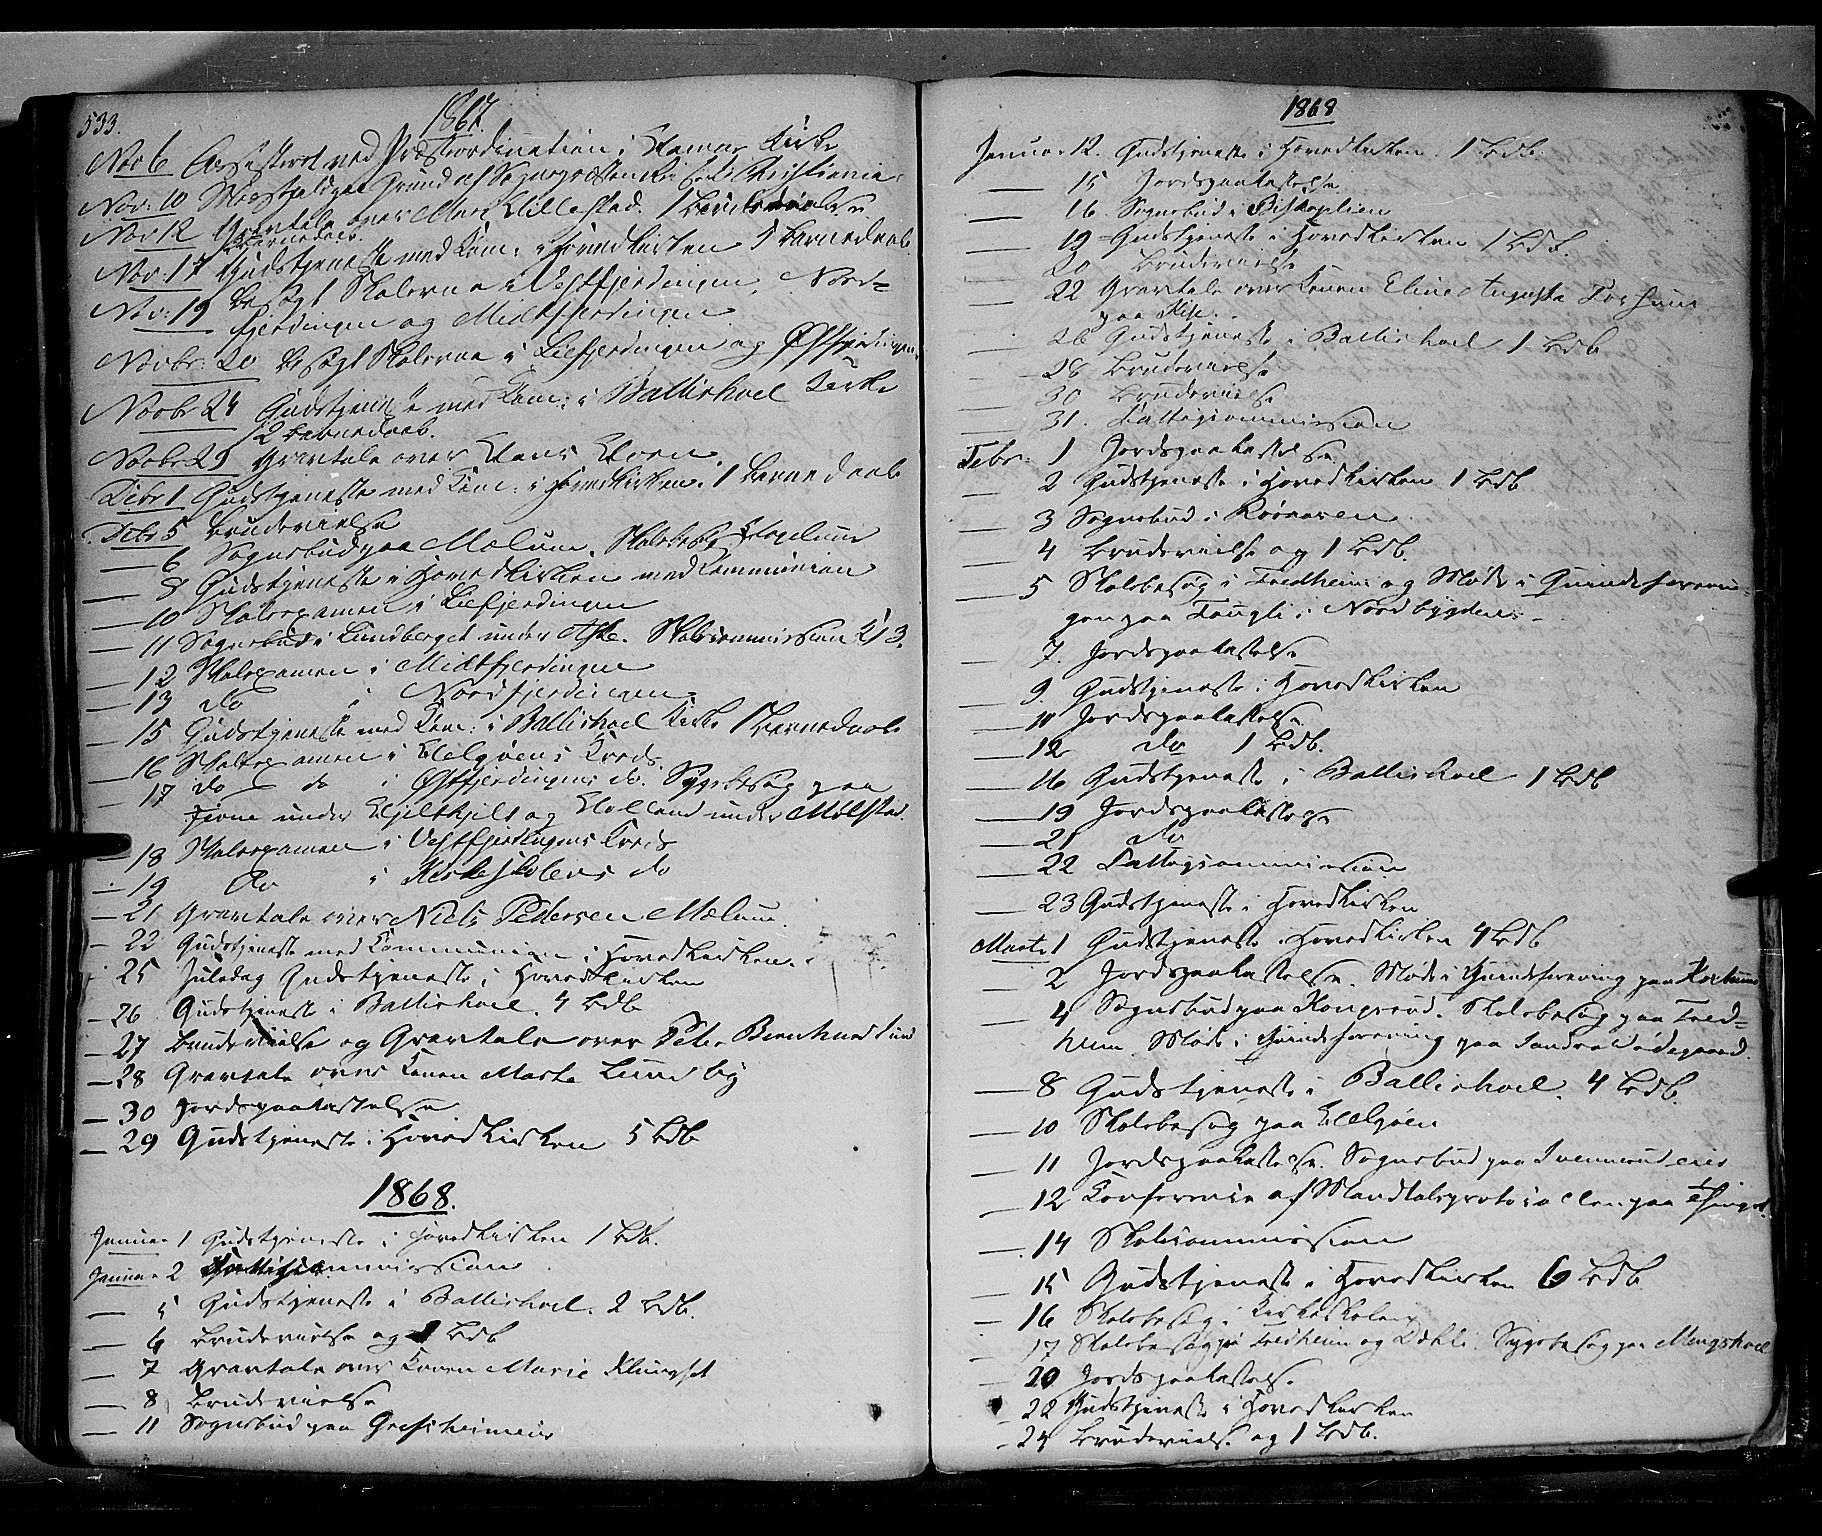 533.
1867.
Nov 6 Assisteret ved Præsteordination i Hamar Kirke
Nov: 10 Messefald paa Grund af Sognepræstens Reise til Christiania.
Nov 12 Gravtale over Mari Lillestad. 1 Barnedaab
Barnedaab.
Nov: 17 Gudstjeneste med Com: i Hovedkirken 5 Barnedaab
Nov: 19 Besøgt Skolerne i Vestfjerdingen, Nord-
fjerdingen og Midtfjerdingen
Novbr: 20 Besøgt Skolerne i Liefjerdingen og Østfjerdingen.
Novbr 24 Gudstjeneste med Com: i Ballishoel Kirke
12 Barnedaab.
Novbr 25 Gravtale over Hans Hoen.
Debr 1 Gudstjeneste med Com: i Hovedkirken. 1 Barnedaab
Debr 5 Brudevielse
— 6 Sognebud paa Mælum. Skolebesøg
— 8 Gudstjeneste i Hovedkirken med Communion
— 10 Skoleexamen i Liefjerdingen
— 11 Sognebud i Lundberget under Aske. Skolecommission
— 12 Skoleexamen i Midtfjerdingen
— 13 do i Nordfjerdingen
— 15 Gudstjeneste med Com: i Ballishoel Kirke 1 Barnedaab
— 16 Skoleexamen i Helgøens Kreds
— 17 do do i Østfjerdingens do. Sygebesøg paa
under og Holland under Mælstad.
— 18 Skoleexamen i Vestfjerdingens Kreds
— 19 do i Kirkeskolens do
— 21 Gravtale over Niels Pedersen Mælum
— 22 Gudstjeneste med Communion i Hovedkirken.
— 25 Juledag Gudstjeneste i Hovedkirken
— 26 Gudstjeneste i Ballishoel. 4 Bdb
— 27 Brudevielse og Gravtale over Peter Bernhard Lund
— 28 Gravtale over Konen Marte Lundby
— 30 Jordspaakastelse
— 29 Gudstjeneste i Hovedkirken 5 Bdb
1868.
Januar 1 Gudstjeneste i Hovedkirken 1 Bdb.
Januar 2 Fattigcommission
— 5 Gudstjeneste i Ballishoel. 2 Bdb.
— 6 Brudevielse og 1 Bdb
— 7 Gravtale over Konen Marie Klungset
— 8 Brudevielse
— 11 Sognebud paa Grefsheimeie
1868
Januar 12. Gudstjeneste i Hovedkirken. 1 Bdb.
— 15 Jordspaakastelse
— 16 Sognebud i Biskoplien
— 19 Gudstjeneste i Hovedkirken 1 Bdb.
— 20 Brudevielse
— 22 Gravtale over Konen Eline Augusta Forsund
paa Kise.
— 26 Gudstjeneste i Ballishoel 1 Bdb
— 28 Brudevielse
— 30 Brudevielse
— 31. Fattigcommission
Febr: 1 Jordspaakastelse
— 2 Gudstjeneste i Hovedkirken 1 Bdb
— 3 Sognebud i
— 4 Brudevielse og 1 Bdb.
— 5 Skolebesøg i Fredheim og Møde i Qvindeforenin-
gen paa Fougli i Nordbygden.
— 7. Jordspaakastelse
— 9. Gudstjeneste i Hovedkirken
— 10 Jordspaakastelse
— 12 do 1 Bdb.
— 16 Gudstjeneste i Ballishoel 1 Bdb
— 19 Jordspaakastelse
— 21 do
— 22 Fattigcommission
— 23 Gudstjeneste i Hovedkirken
Marts 1 Gudstjeneste i Hovedkirken 4 Bdb
— 2 Jordspaakastelse. Møde i Qvindeforening paa
— 4 Sognebud paa Kongsrud. Skolebesøg paa Fred-
heim. Møde i Qvindeforening paa Sandre Dødegaard.
— 8 Gudstjeneste i Ballishoel. 4 Bdb.
— 10 Skolebesøg paa Helgøen
— 11 Jordspaakastelse. Sognebud paa Svennerudeie
— 12 Conferencie af Mandtalsprotocollen paa Thinget.
— 14 Skolecommission
— 15 Gudstjeneste i Hovedkirken 6 Bdb
— 16 Skolebesøg i Kirkeskolen
— 17 Skolebesøg på Fredheim og Dæhli. Sygebesøg paa Mengshoel
— 20 Jordspaakastelse
— 22 Gudstjeneste i Hovedkirken
— 24 Brudevielse og 1 Bdb.